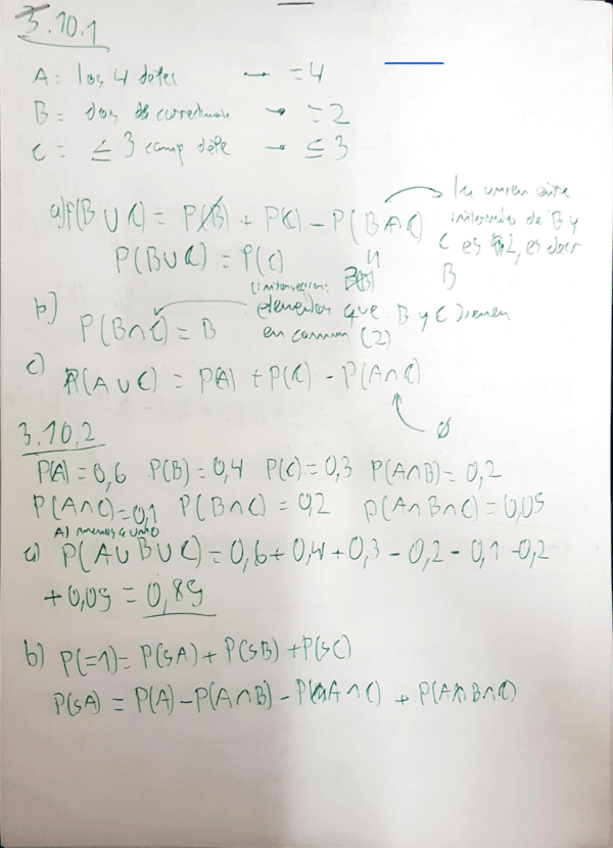 3.10.1
A = los 4 defec → = 4
B = dos correctamente → = 2
C = ≤ 3 camp defe → ≤ 3
a) P(B ∪ C) = P(B) + P(C) - P(B ∩ C)
la union entre
interseccion de B y
C es 2, es decir
B
P(B ∪ C) = P(C)
b) P(B ∩ C) = B
(interseccion:
elementos que B y C tienen
en comun (2)
c) P(A ∪ C) = P(A) + P(C) - P(A ∩ C)
∅
3.10.2
P(A) = 0,6 P(B) = 0,4 P(C) = 0,3 P(A ∩ B) = 0,2
P(A ∩ C) = 0,1 P(B ∩ C) = 0,2 P(A ∩ B ∩ C) = 0,05
Al menos uno
a) P(A ∪ B ∪ C) = 0,6 + 0,4 + 0,3 - 0,2 - 0,1 - 0,2
+ 0,05 = 0,85
b) P(=1) = P(sA) + P(sB) + P(sC)
P(sA) = P(A) - P(A ∩ B) - P(A ∩ C) + P(A ∩ B ∩ C)